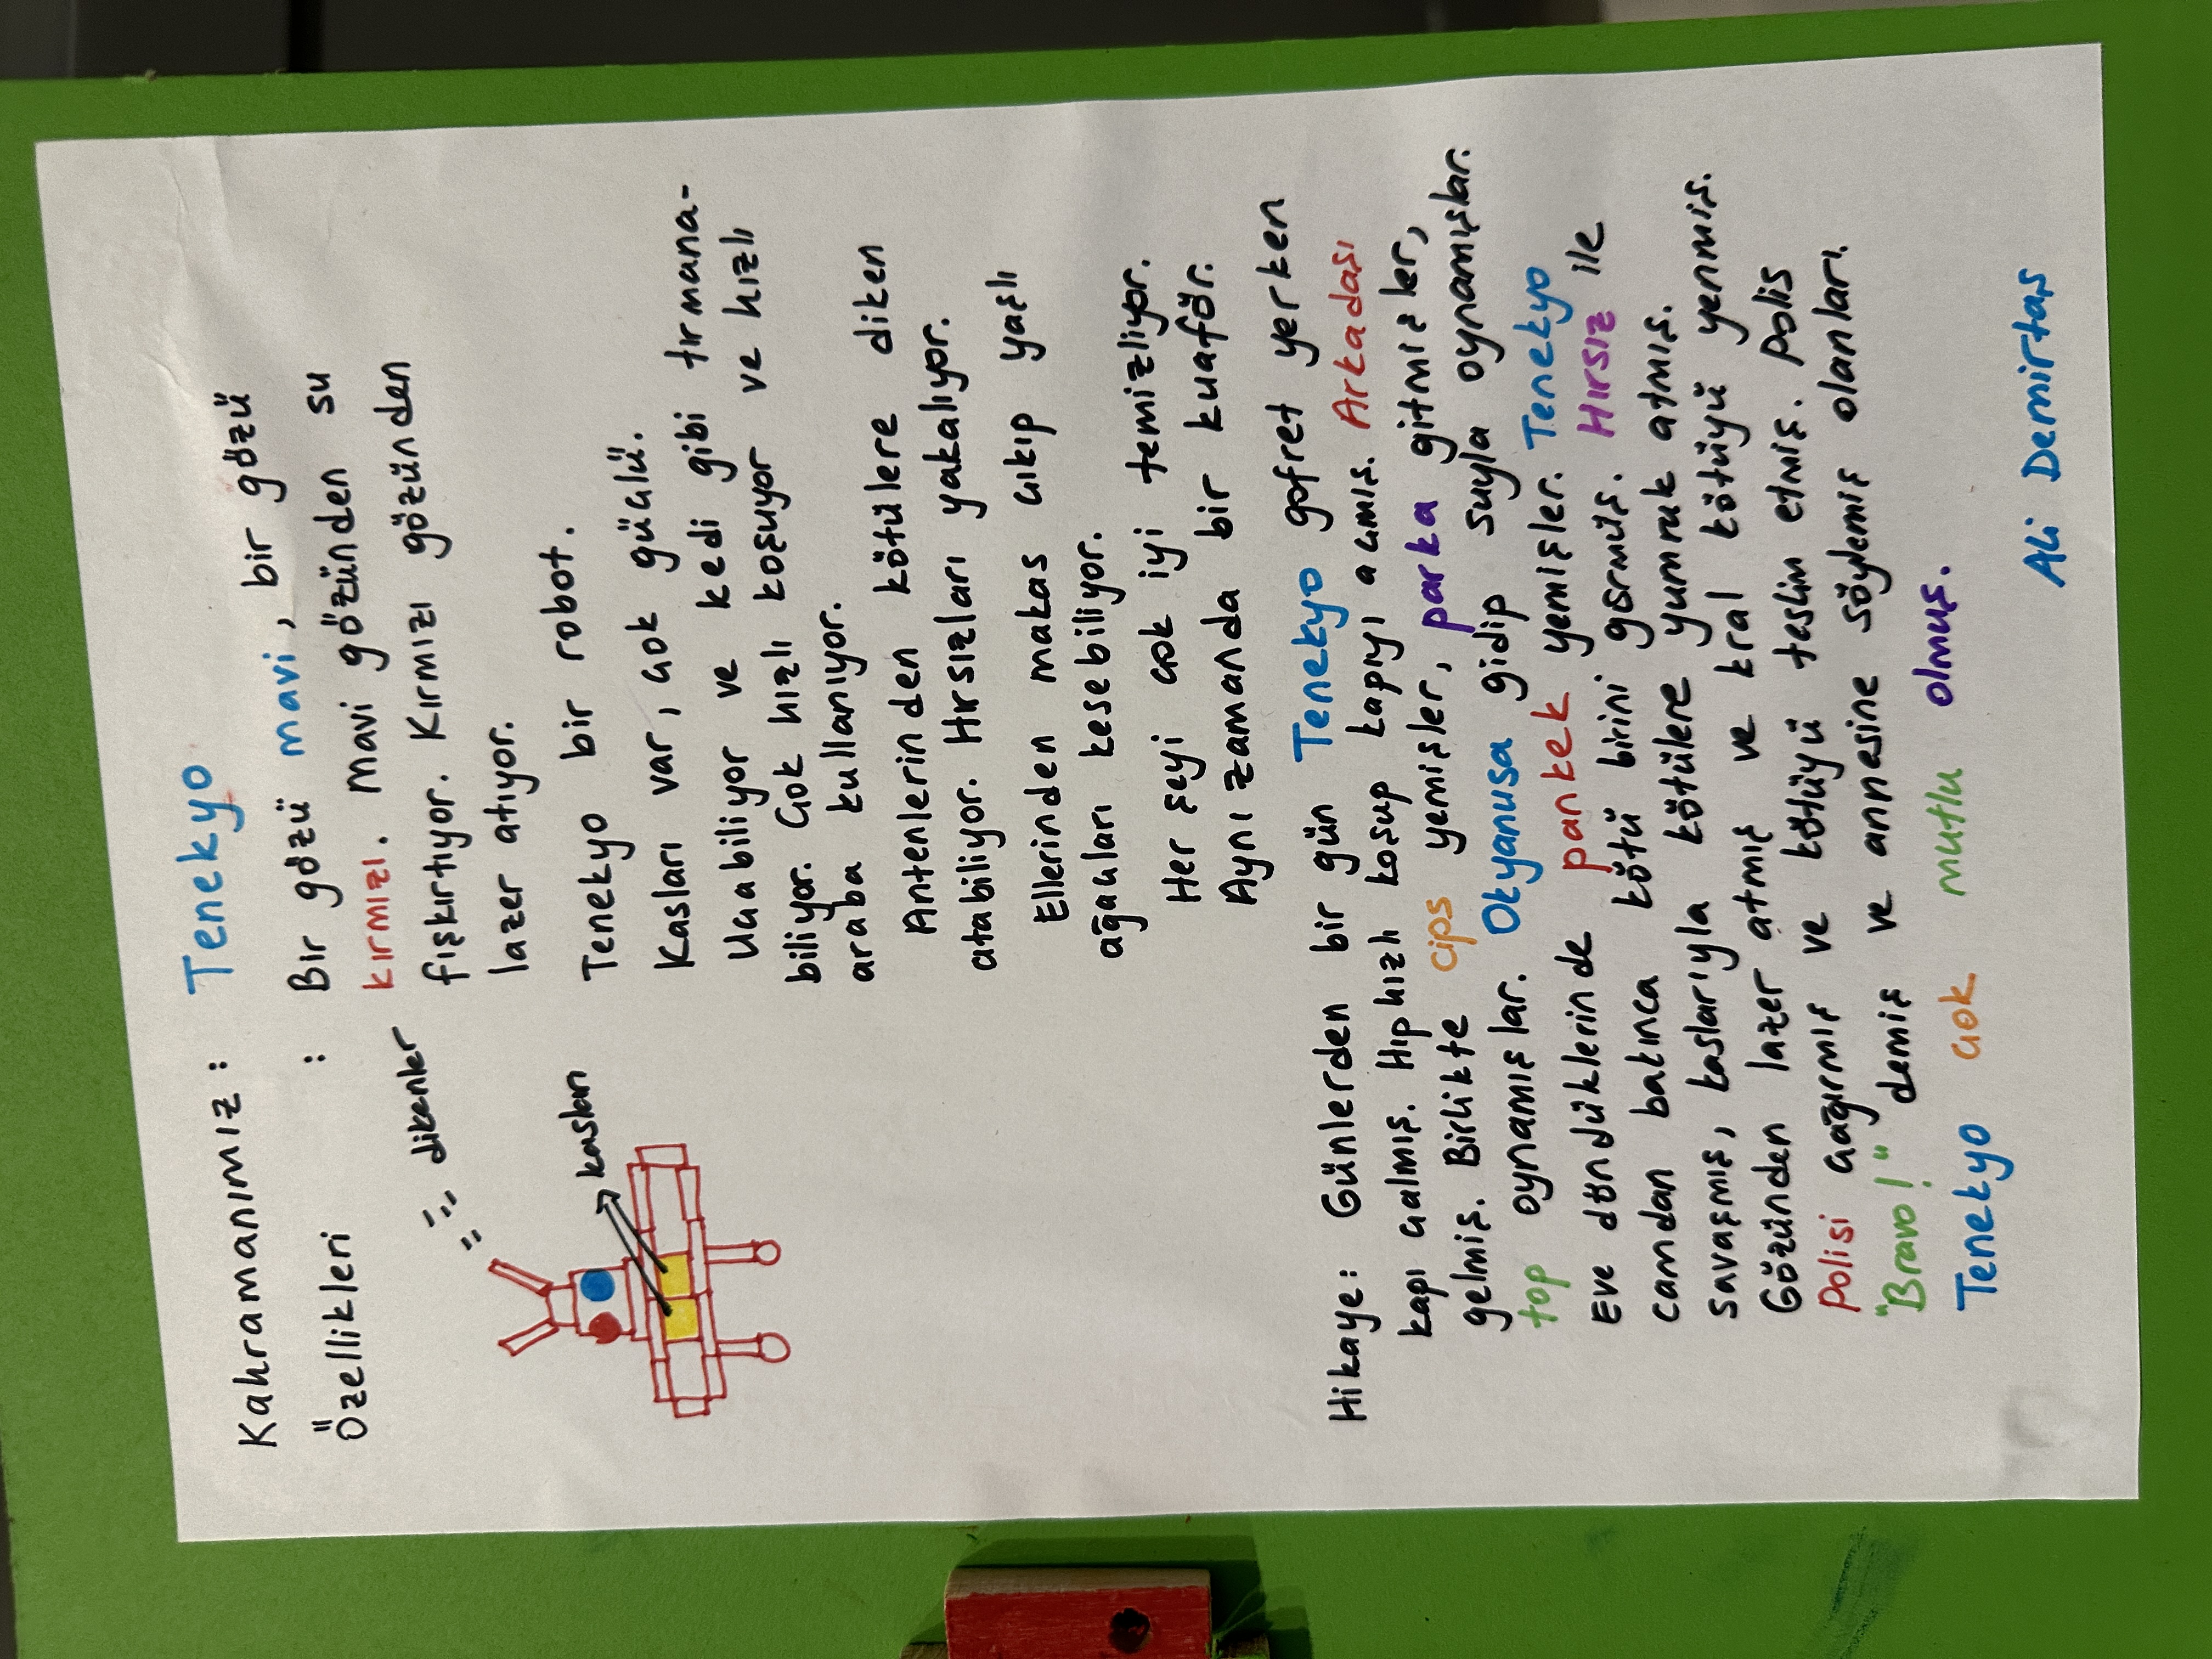 Kahramanımız : Tenekyo
Özellikleri : Bir gözü mavi, bir gözü
kırmızı. Mavi gözünden su
fışkırtıyor. Kırmızı gözünden
lazer atıyor.
dikenler
kasları
Tenekyo bir robot.
Kasları var, çok güçlü.
Uçabiliyor ve kedi gibi tırmana-
biliyor. Çok hızlı koşuyor ve hızlı
araba kullanıyor.
Antenlerinden kötülere diken
atabiliyor. Hırsızları yakalıyor.
Ellerinden makas çıkıp yaşlı
ağaçları kesebiliyor.
Her şeyi çok iyi temizliyor.
Aynı zamanda bir kuaför.
Hikaye: Günlerden bir gün Tenekyo gofret yerken
kapı çalmış. Hıphızlı koşup kapıyı açmış. Arkadaşı
gelmiş. Birlikte cips yemişler, parka gitmişler,
top oynamışlar. Okyanusa gidip suyla oynamışlar.
Eve döndüklerinde pankek yemişler. Tenekyo
camdan bakınca kötü birini görmüş. Hırsız ile
savaşmış, kaslarıyla kötülere yumruk atmış.
Gözünden lazer atmış ve kral kötüyü yenmiş.
Polisi çağırmış ve kötüyü teslim etmiş. Polis
"Bravo!" demiş ve annesine söylemiş olanları.
Tenekyo çok mutlu olmuş.
Ali Demirtaş